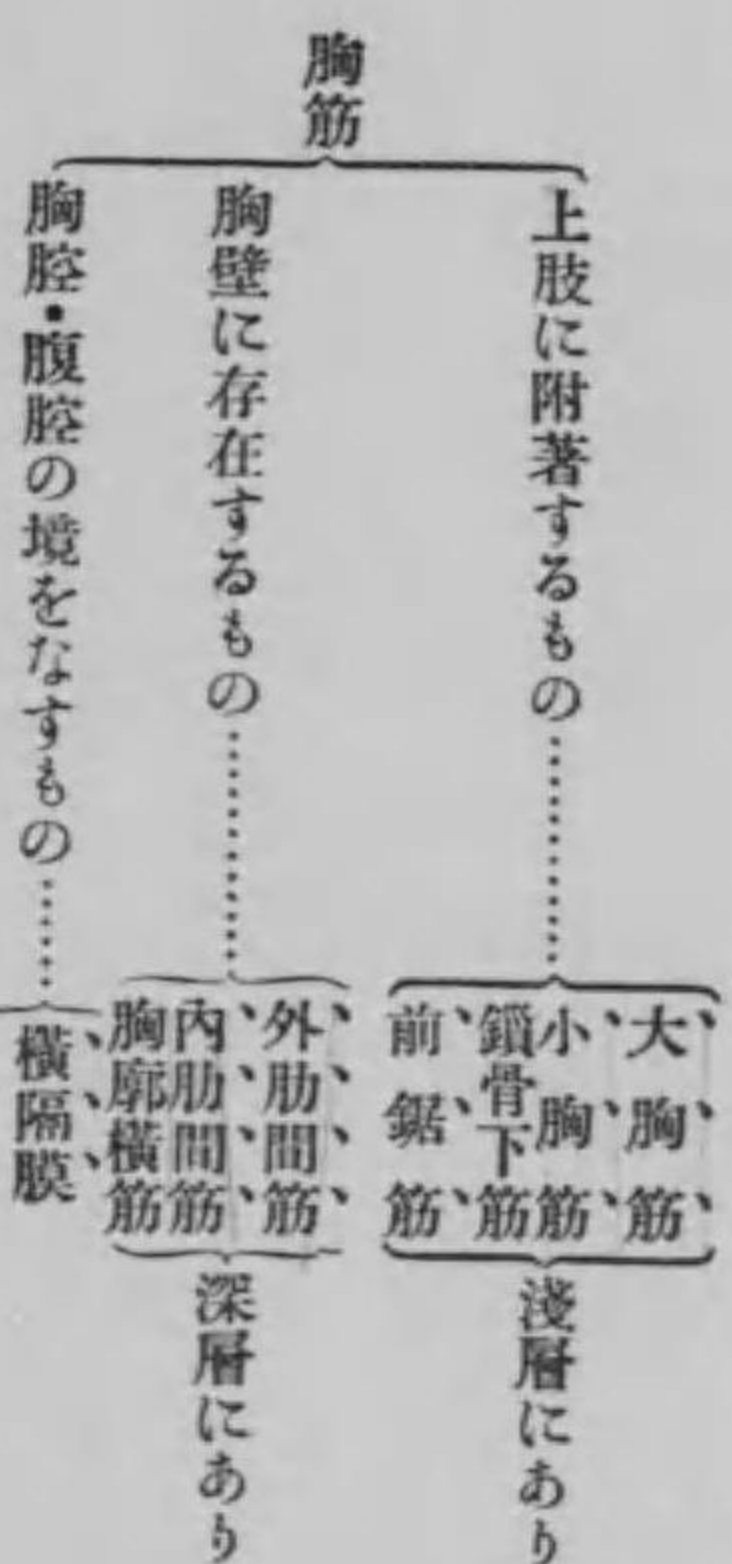 胸筋
上肢に附著するもの………
大胸筋
小胸筋
鎖骨下筋
前鋸筋
淺層にあり
胸壁に存在するもの………
外肋間筋
內肋間筋
胸廓橫筋
深層にあり
胸腔・腹腔の境をなすもの……
橫隔膜